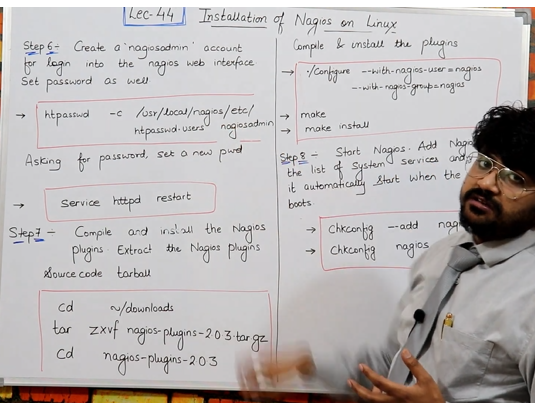 Lec-44
Installation of Nagios on Linux
Step 6:- Create a 'nagiosadmin' account
for login into the nagios web interface.
Set password as well
→ htpasswd -c /usr/local/nagios/etc/
htpasswd.users nagiosadmin
Asking for password, set a new pwd
→ Service httpd restart
Step7:- Compile and install the Nagios
plugins. Extract the Nagios plugins
Source code tarball
cd ~/downloads
tar zxvf nagios-plugins-2.0.3.tar.gz
Cd nagios-plugins-2.0.3
Compile & install the plugins
→ ./Configure --with-nagios-user=nagios
--with-nagios-group=nagios
→ make
→ make install
Step 8:- Start Nagios. Add
the list of System services and
it automatically start when the
boots.
→ Chkconfig --add
→ Chkconfig nagios